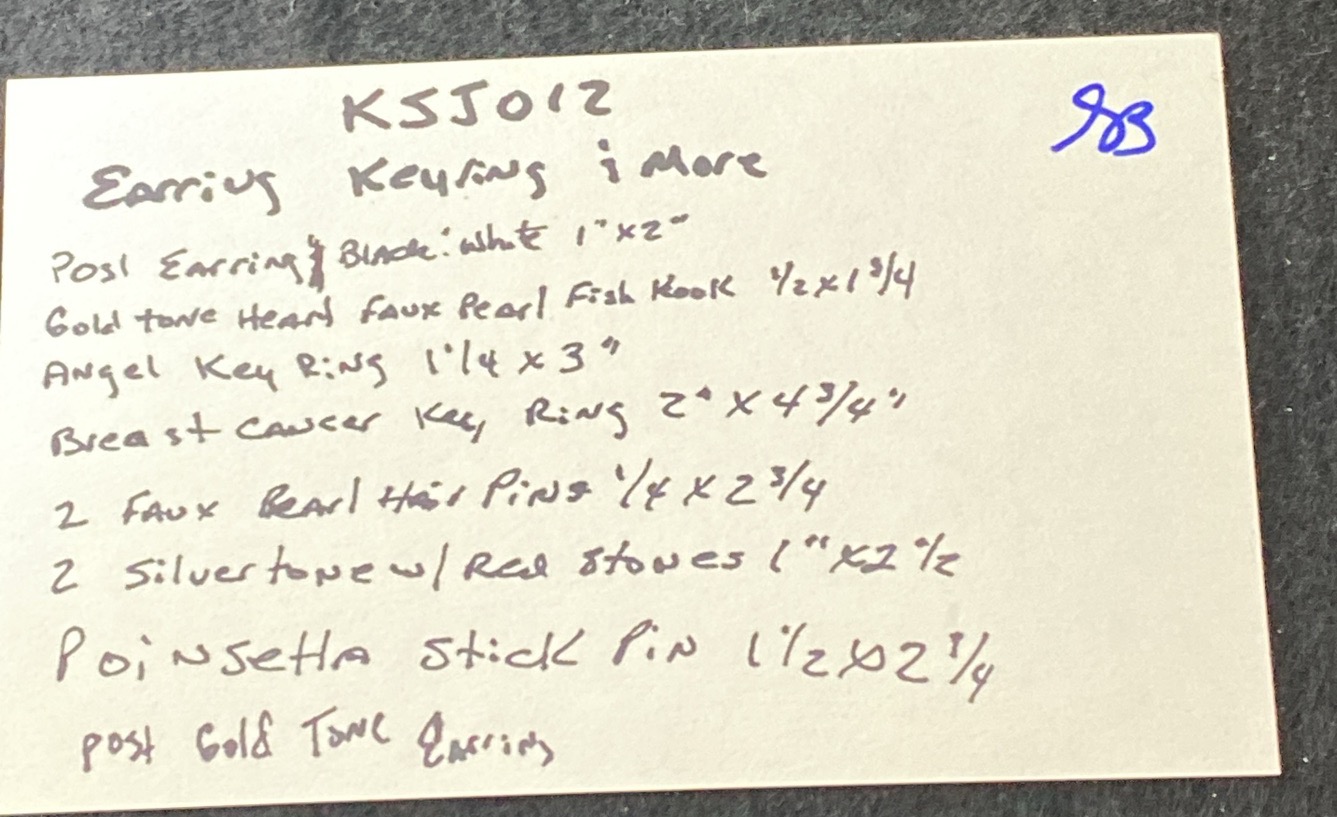 KSJ012
Earring Keyring & More
Post Earring Black & White 1" x 2"
Gold tone Heart Faux Pearl Fish Hook 1/2 x 1 3/4
Angel Key Ring 1 1/4 x 3"
Breast Cancer Key Ring 2" x 4 3/4"
2 Faux Pearl Hair Pins 1/4 x 2 3/4
2 Silvertone w/ Red Stones 1" x 2 1/2
Poinsetta Stick Pin 1 1/2 x 2 3/4
Post Gold Tone Earring